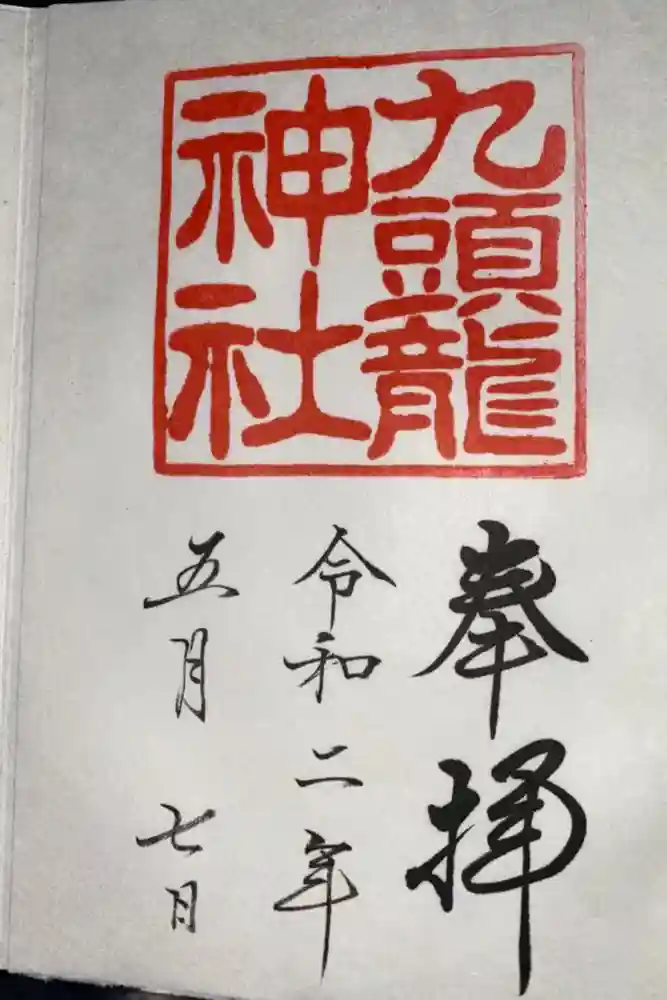 九頭龍
神社
奉拝
令和二年
五月七日